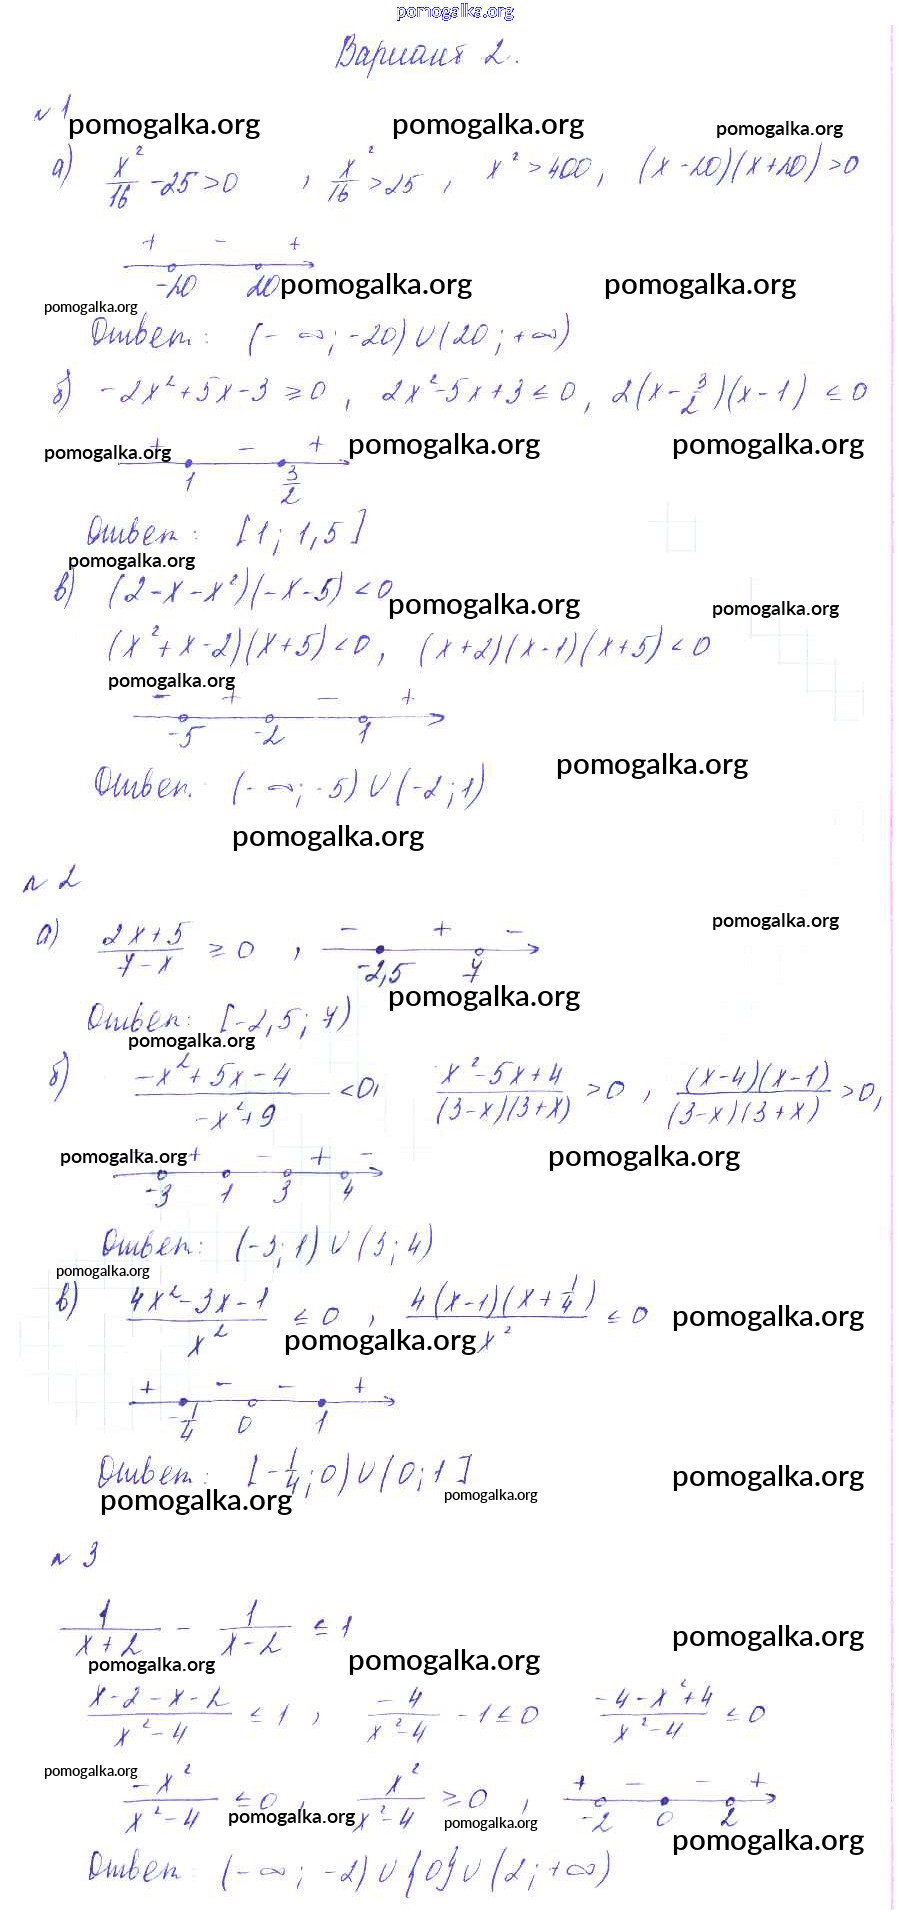 pomogalka.org
Вариант 2.
№ 1
pomogalka.org pomogalka.org pomogalka.org
а) x²/16 - 25 > 0 , x²/16 > 25 , x² > 400 , (x - 20)(x + 20) > 0
+ - +
-20 20 pomogalka.org pomogalka.org
pomogalka.org
Ответ: (-∞; -20) ∪ (20; +∞)
б) -2x² + 5x - 3 ≥ 0 , 2x² - 5x + 3 ≤ 0 , 2(x - 3/2)(x - 1) ≤ 0
pomogalka.org + - + pomogalka.org pomogalka.org
1 3/2
Ответ: [1; 1,5]
pomogalka.org
в) (2 - x - x²)(-x - 5) < 0
pomogalka.org pomogalka.org
(x² + x - 2)(x + 5) < 0 , (x + 2)(x - 1)(x + 5) < 0
pomogalka.org
- + - +
-5 -2 1
pomogalka.org
Ответ. (-∞; -5) ∪ (-2; 1)
pomogalka.org
№ 2
pomogalka.org
а) (2x + 5)/(7 - x) ≥ 0 , - + -
-2,5 7
pomogalka.org
Ответ: [-2,5; 7)
pomogalka.org
б) (-x² + 5x - 4)/(-x² + 9) < 0, (x² - 5x + 4)/((3 - x)(3 + x)) > 0 , ((x - 4)(x - 1))/((3 - x)(3 + x)) > 0,
pomogalka.org + - + - pomogalka.org
-3 1 3 4
Ответ: (-3; 1) ∪ (3; 4)
pomogalka.org
в) (4x² - 3x - 1)/x² ≤ 0 , (4(x - 1)(x + 1/4))/x² ≤ 0 pomogalka.org
pomogalka.org
+ - - +
-1/4 0 1
Ответ: [-1/4; 0) ∪ (0; 1] pomogalka.org
pomogalka.org pomogalka.org
№ 3
1/(x + 2) - 1/(x - 2) ≤ 1 pomogalka.org
pomogalka.org pomogalka.org
(x - 2 - x - 2)/(x² - 4) ≤ 1 , -4/(x² - 4) - 1 ≤ 0 (-4 - x² + 4)/(x² - 4) ≤ 0
pomogalka.org
-x²/(x² - 4) ≤ 0 , x²/(x² - 4) ≥ 0 , + - - +
-2 0 2
pomogalka.org pomogalka.org
pomogalka.org
Ответ: (-∞; -2) ∪ {0} ∪ (2; +∞)